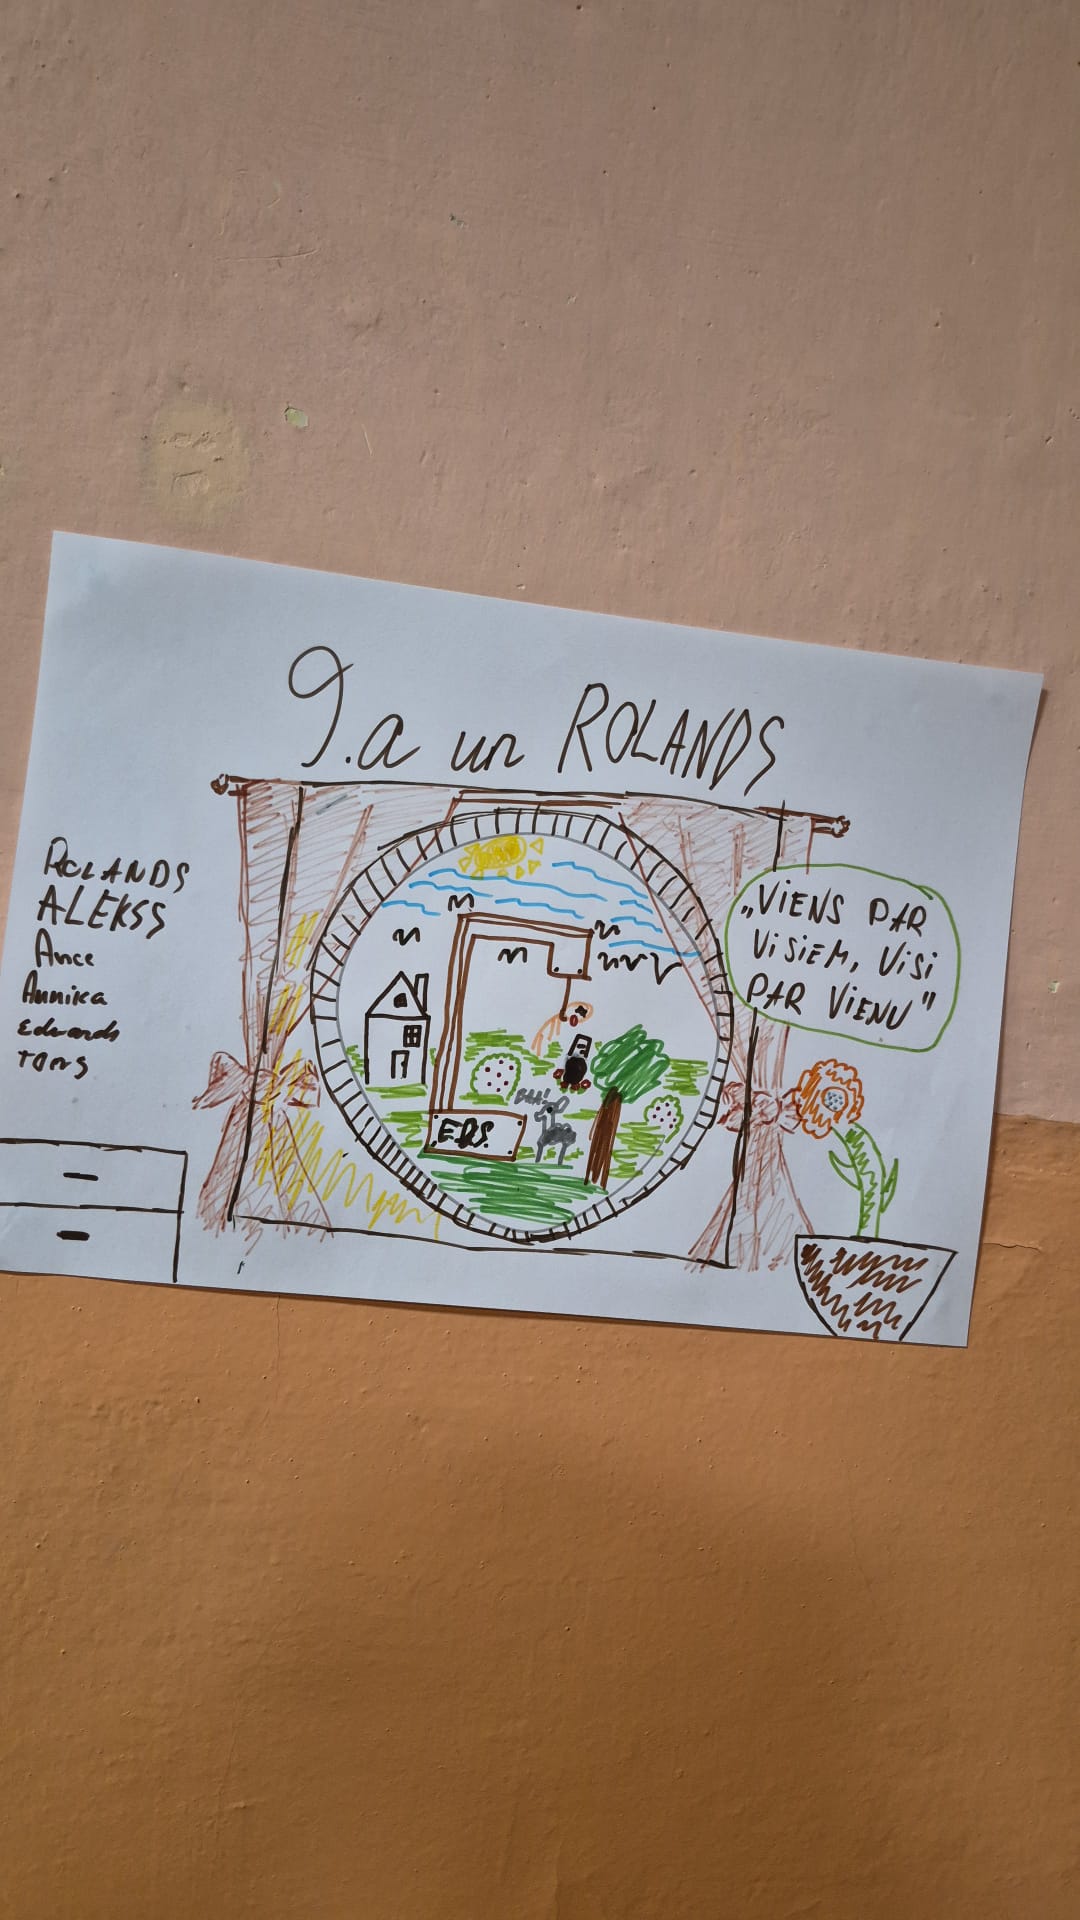 9.a un ROLANDS
ROLANDS
ALEKSS
Ance
Annika
Edvards
TOMS
„VIENS PAR
VISIEM, VISI
PAR VIENU"
BAA!
E.D.S.